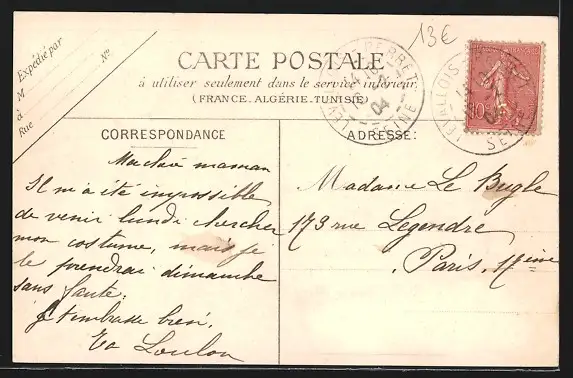 Expédié par
M
à
Rue
Nº
13€
CARTE POSTALE
à utiliser seulement dans le service intérieur
(FRANCE, ALGÉRIE, TUNISIE)
LEVALLOIS-PERRET
SEINE
04
10
CORRESPONDANCE
maman
Il m'a été impossible
de venir lundi chercher
mon costume, mais je
le prendrai dimanche
sans faute.
Je t'embrasse bien,
Loulou
ADRESSE:
Madame Le Bugle
173 rue Legendre
Paris. 17ème